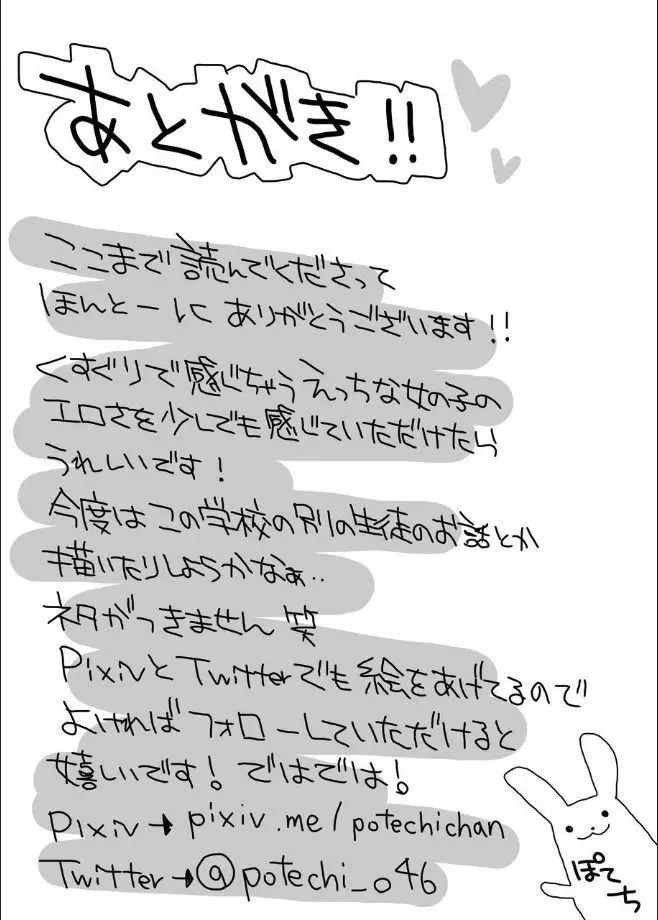 あとがき!!
ここまで読んでくださって
ほんとーにありがとうございます!!
くすぐりで感じちゃうえっちな女の子の
エロさを少しでも感じていただけたら
うれしいです!
今度はこの学校の別の生徒のお話とか
描いたりしようかなぁ..
ネタがつきません笑
PixivとTwitterでも絵をあげてるので
よければフォローしていただけると
嬉しいです!ではでは!
Pixiv→pixiv.me/potechichan
Twitter→@potechi_046
ぽてち